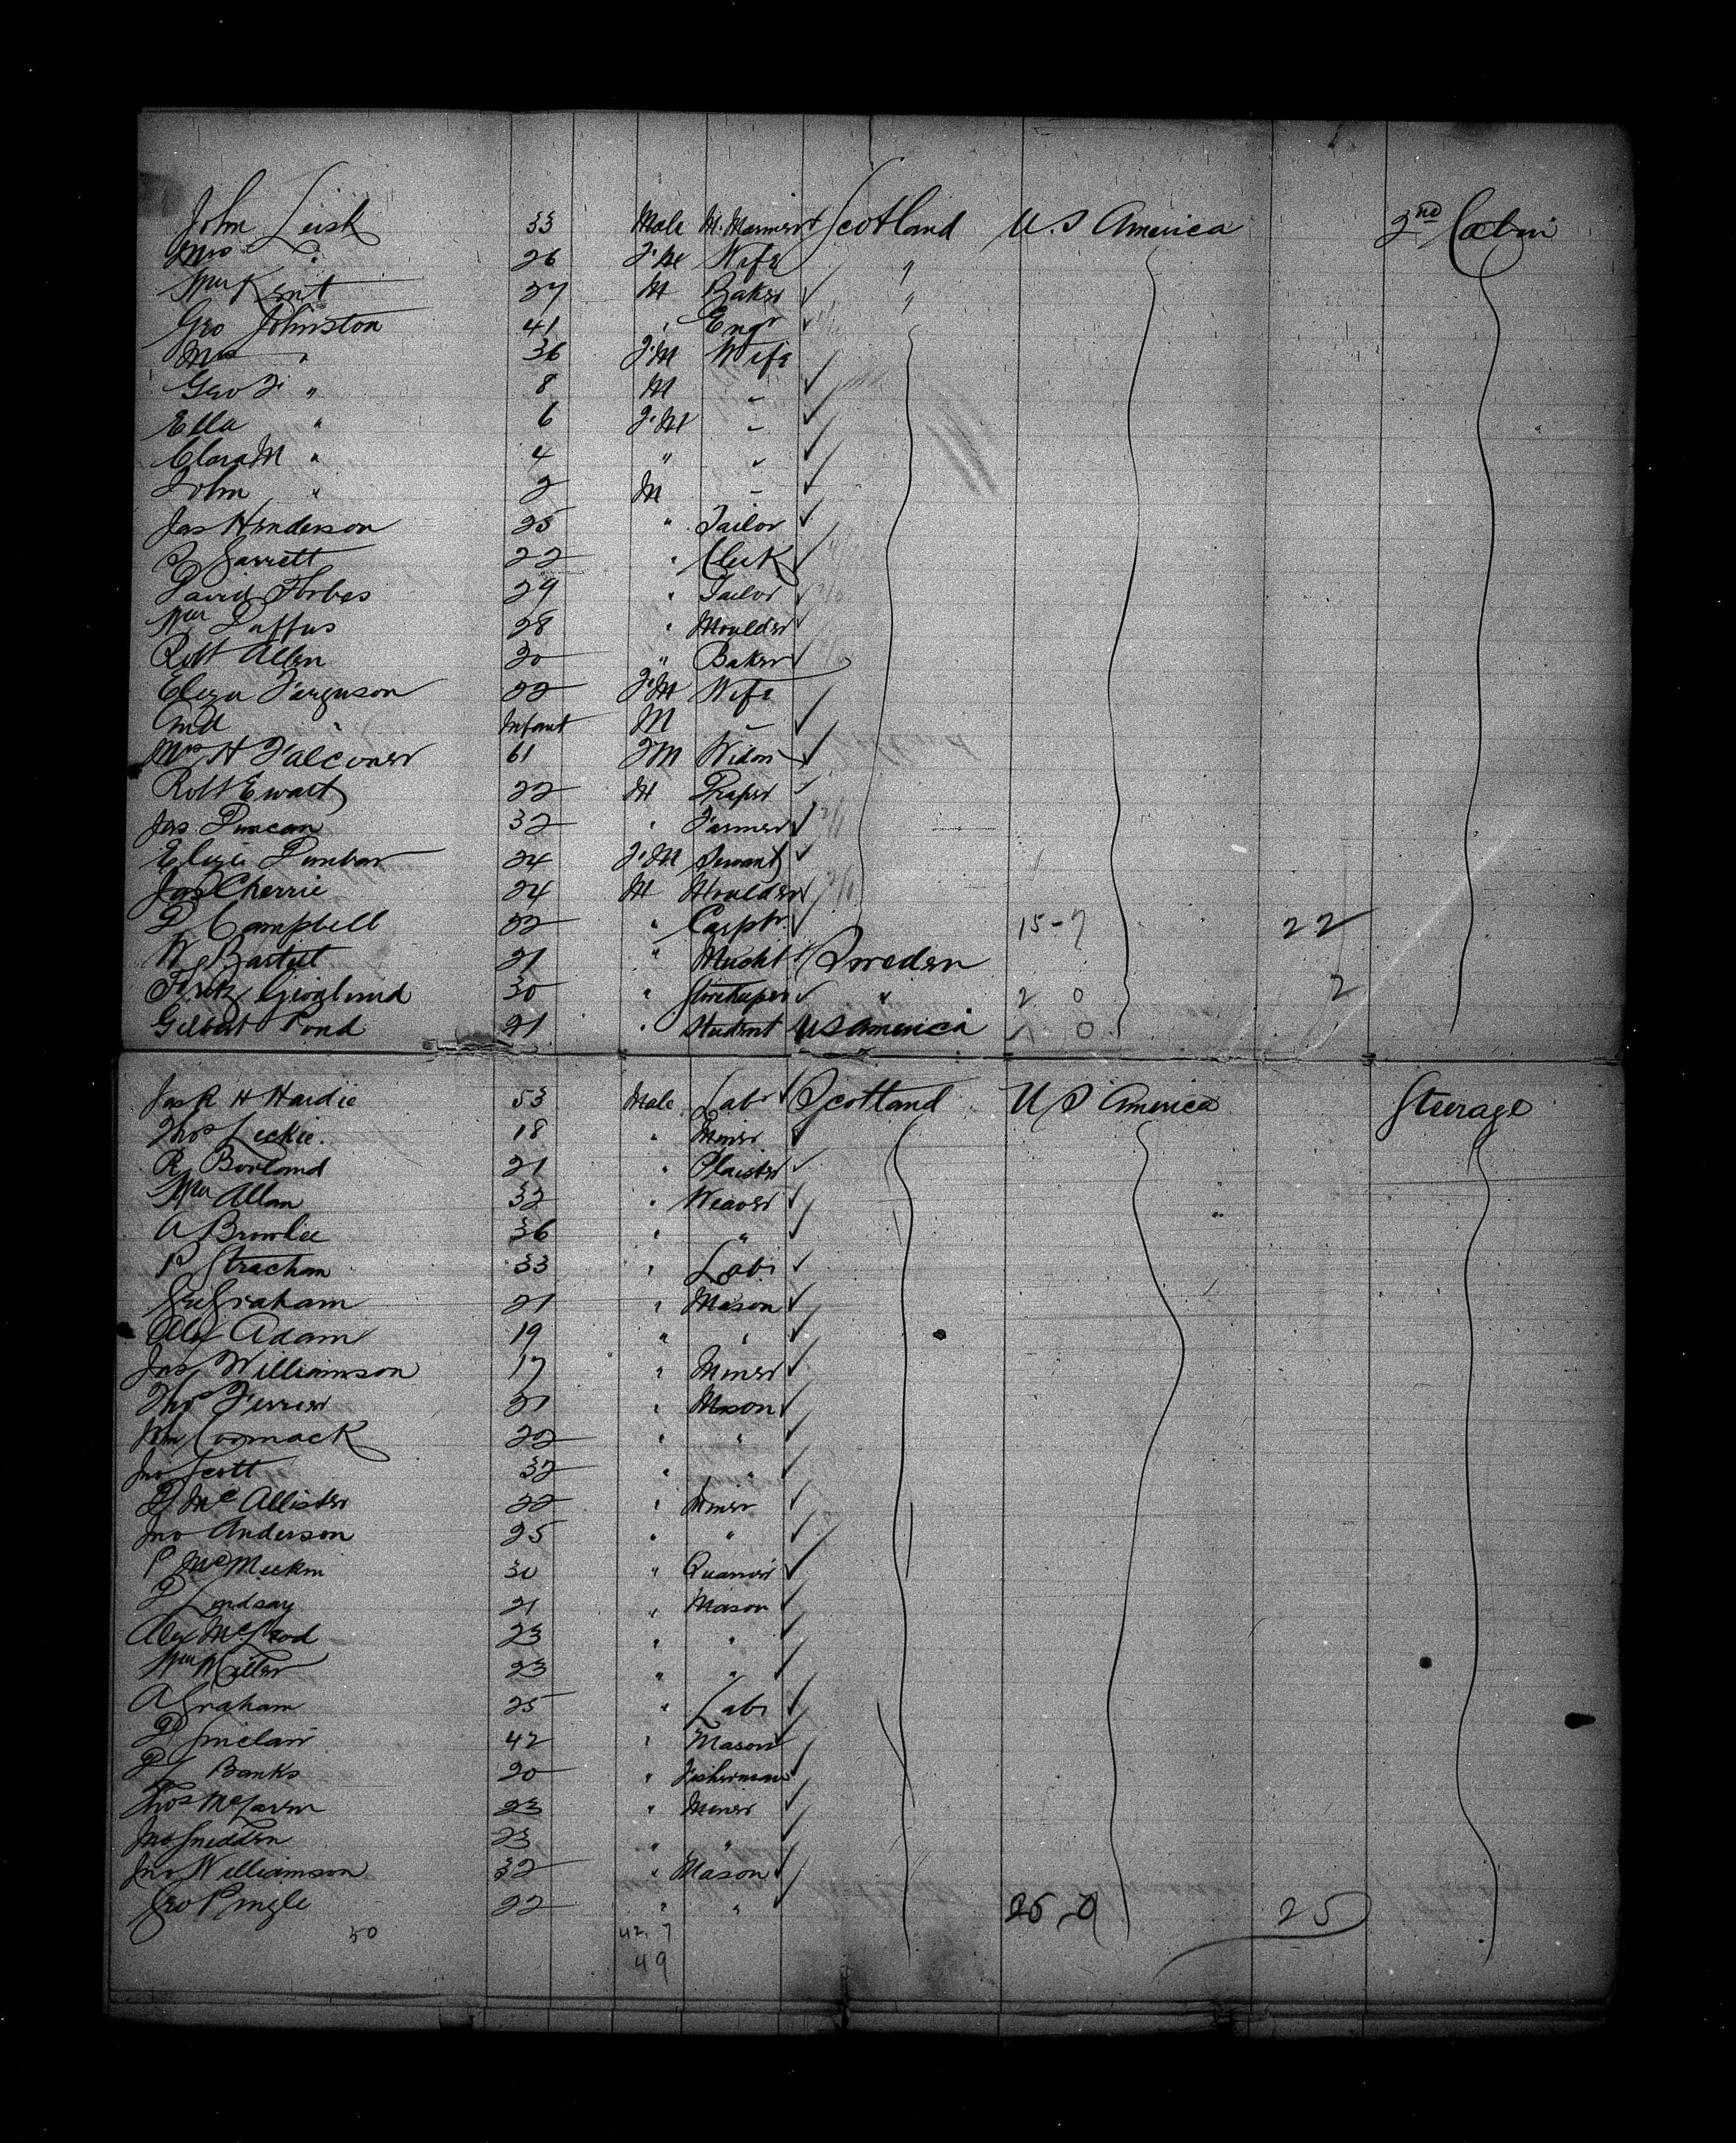 John Leisk 33 Male M. Mariner Scotland U.S America 2nd Cabin
Mrs " 26 F.M Wife "
Wm Kent 27 M Baker "
Geo Johnston 41 " Engr
Mrs " 36 F.M Wife
Geo F " 8 M -
Ella " 6 F.M -
Clara M " 4 " "
John " 2 M -
Jas Henderson 25 " Tailor
R Garrett 22 " Clerk
David Forbes 29 " Tailor
Wm Duffus 28 " Moulder
Robt Allen 30 " Baker
Eliza Ferguson 22 F.M Wife
And " Infant M -
Mrs H Falconer 61 FM Widow
Robt Ewart 22 M Draper
Jas Duncan 32 " Farmer
Eliza Dunbar 24 F.M Servant
Jas Cherrie 24 M Moulder
D Campbell 32 " Carptr 15-7 22
W 21 " Mucht Sweden
30 " Storekeeper " 2 0 2
Gilbert Pond 21 " Student US America 1 0
Jas R H Hardie 53 Male Labr Scotland U S America Steerage
Thos Leckie 18 " Miner
R Borland 21 " Plaister
Wm Allan 32 " Weaver
A Brownlee 36 " "
P Strachan 33 " Labr
Graham 21 " Mason
Alex Adam 19 " "
Jas Williamson 17 " Miner
Thos Ferrier 31 " Mason
Cormack 22 " "
Jno Scott 32 " "
D McAllister 22 " Miner
Jno Anderson 25 " "
P McMeekin 30 " Quarrier
D Lindsay 21 " Mason
Alex McLeod 23 " "
Wm Miller 23 " "
A Graham 25 " Labr
D Sinclair 42 " Mason
D Banks 20 " Fisherman
Thos McLaren 23 " Miner
Jno Snedden 23 " "
Jno Williamson 32 " Mason
Geo Pringle 22 " " 25-0 25
50 42. 7
49